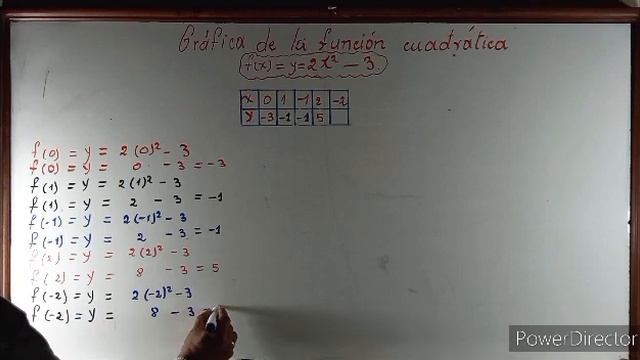 Gráfica de la función cuadrática
f(x) = y = 2x² - 3
x 0 1 -1 2 -2
y -3 -1 -1 5
f(0) = y = 2(0)² - 3
f(0) = y = 0 - 3 = -3
f(1) = y = 2(1)² - 3
f(1) = y = 2 - 3 = -1
f(-1) = y = 2(-1)² - 3
f(-1) = y = 2 - 3 = -1
f(2) = y = 2(2)² - 3
f(2) = y = 8 - 3 = 5
f(-2) = y = 2(-2)² - 3
f(-2) = y = 8 - 3
PowerDirector